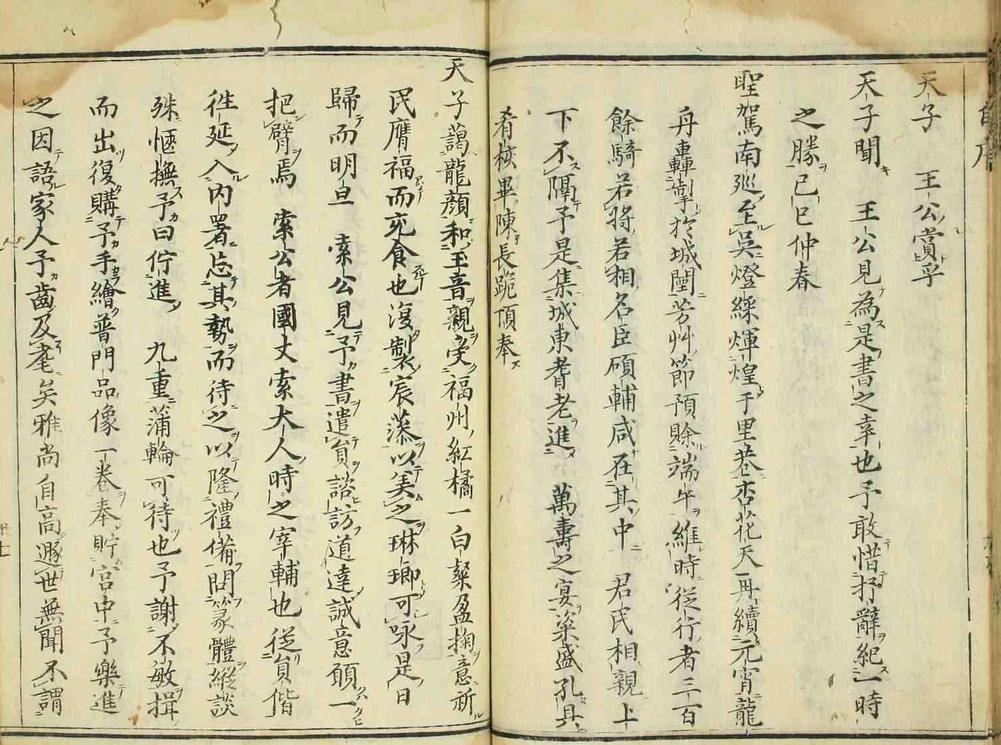 天子 王公賞乎
天子聞 王公見為是書之幸也予敢惜抒辭紀一時
之勝己巳仲春
聖駕南廵至吳燈綵煇煌于里巷杏花天再續元宵龍
舟轟掣於城闉芳艸節預賖端午維時従行者三百
餘騎若將若相名臣碩輔咸在其中 君民相親上
下不隔予是集城東耆老進 萬壽之宴粢盛孔具
肴核畢陳長跪頂奉
天子藹龍顔和玉音親受福州紅橘一白粲盈掬意祈
民膺福而充食也復製宸藻以美之琳瑯可咏是日
歸而明旦 索公見予書遣貟諮訪道達誠意願一
把臂焉 索公者國丈索大人時之宰輔也従貟偕
徃延入内署忘其勢而待之以隆禮備問篆體縱談
殊愜撫予曰佇進 九重蒲輪可待也予謝不敏揖
而出復購予手繪普門品像一卷奉貯宮中予樂進
之因語家人予齒及耄矣雅尚自高遯世無聞不謂